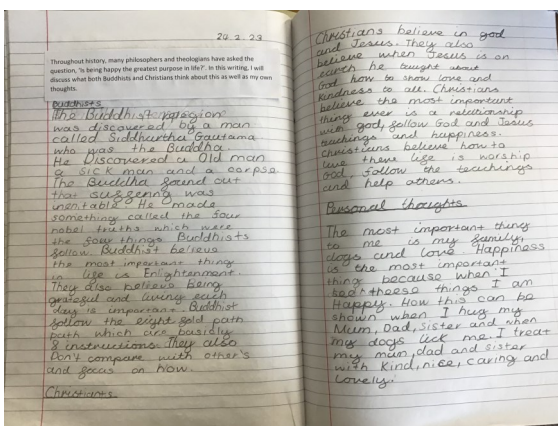 20.2.23
Throughout history, many philosophers and theologians have asked the
question, "Is being happy the greatest purpose in life?". In this writing, I will
discuss what both Buddhists and Christians think about this as well as my own
thoughts.
Buddhists
The Buddhist religion
was discovered by a man
called Siddhartha Gautama
who was the Buddha
He Discovered a Old man
a sick man and a corpse
The Buddha found out
that suffering was
inevitable He made
something called the four
nobel truths which were
the four things Buddhists
follow. Buddhist believe
the most important thing
in life is Enlightenment.
They also believe being
grateful and living each
day is important. Buddhist
follow the eight fold path
path which are basicly
8 instructions. They also
Don't compare with other's
and focus on now.
Christians
Christians believe in god
and Jesus. They also
believe when Jesus is on
earth he tought about
God how to show love and
kindness to all. Christians
believe the most important
thing ever is a relationship
with god, follow God and Jesus
teachings and happiness.
Christians believe how to
live there life is worship
God, follow the teachings
and help others.
Personal thoughts
The most important thing
to me is my family,
dogs and love. Happiness
is the most important
thing because when I
see theese things I am
Happy. How this can be
shown when I hug my
Mum, Dad, sister and when
my dogs lick me. I treat
my mum, dad and sister
with kind, nice, caring and
lovely.